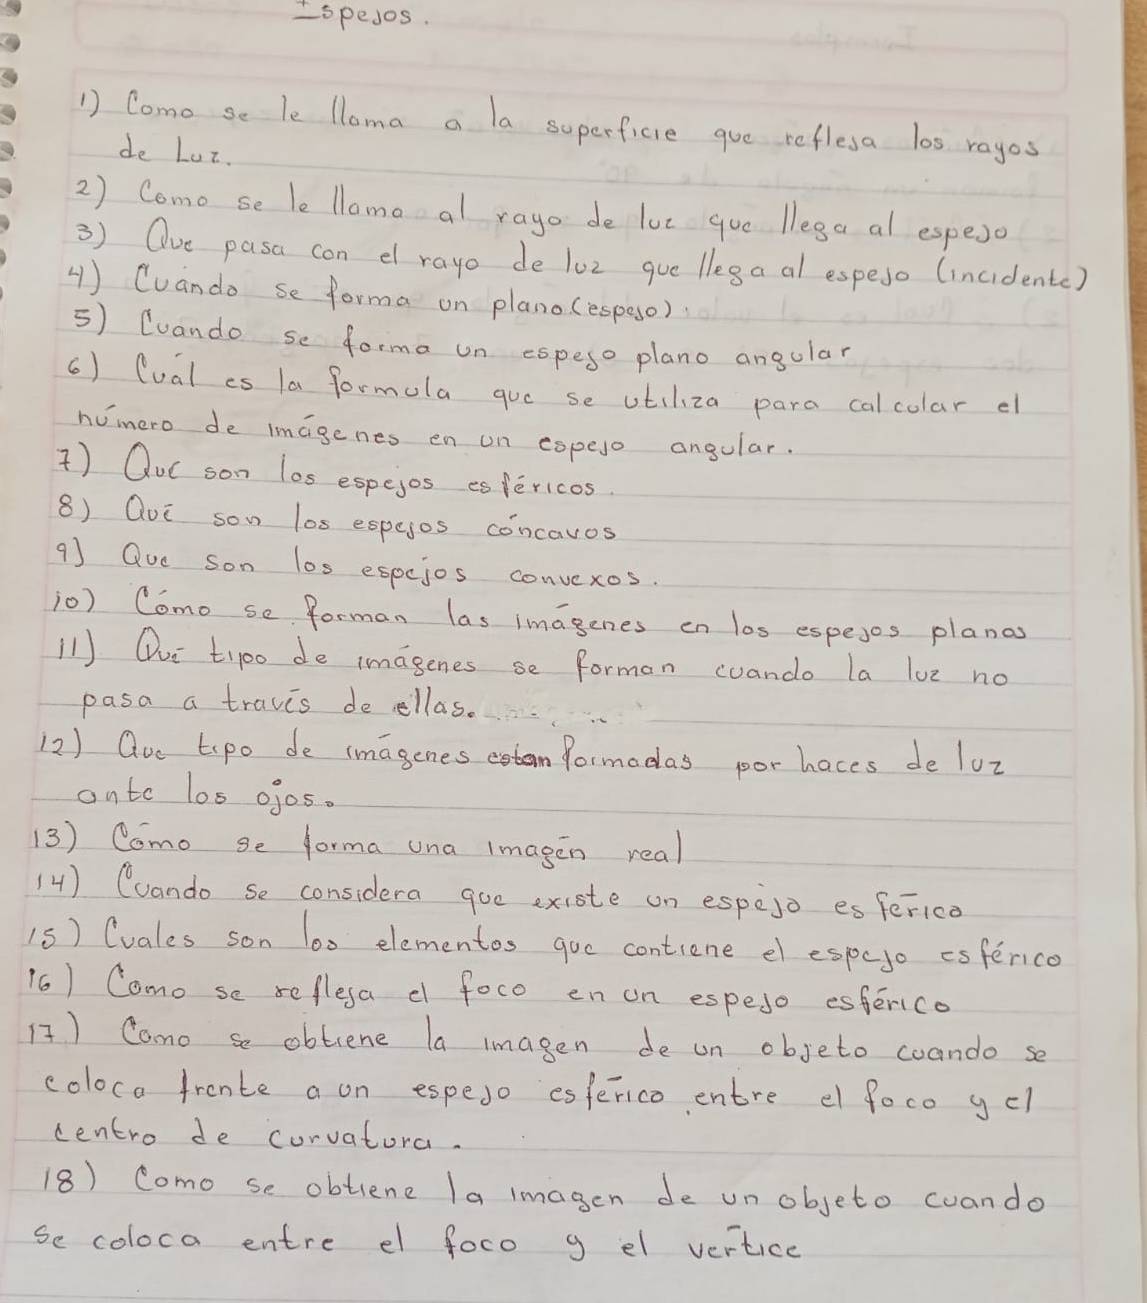 Espejos.
1) Como se le llama a la superficie que reflesa los rayos
de Luz.
2) Como se le llama al rayo de luz que llega al espejo
3) Que pasa con el rayo de luz que llega al espejo (incidente)
4) Cuándo se forma un plano (espejo)
5) Cuando se forma un espejo plano angular
6) Cuál es la formula que se utiliza para calcular el
número de imágenes en un espejo angular.
7) Que son los espejos esféricos.
8) Qué son los espejos cóncavos
9) Que son los espejos convexos.
10) Cómo se forman las imágenes en los espejos planos
11) Qué tipo de imágenes se forman cuando la luz no
pasa a través de ellas.
12) Que tipo de imágenes estan formadas por haces de luz
ante los ojos.
13) Cómo se forma una imagén real
14) Cuando se considera que existe un espejo esférico
15) Cuales son los elementos que contiene el espejo esférico
16) Como se reflesa el foco en un espejo esférico
17) Como se obtiene la imagen de un objeto cuando se
coloca frente a un espejo esférico entre el foco y el
centro de curvatura.
18) Como se obtiene la imagen de un objeto cuando
se coloca entre el foco y el vértice